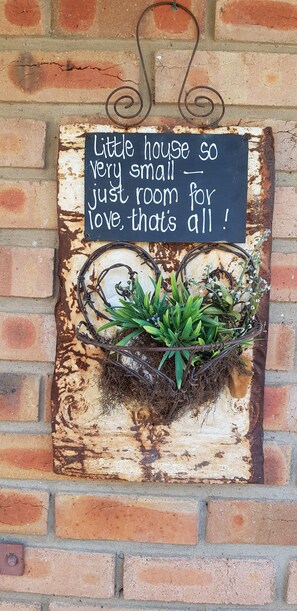 Little house so
very small —
just room for
love, that's all !